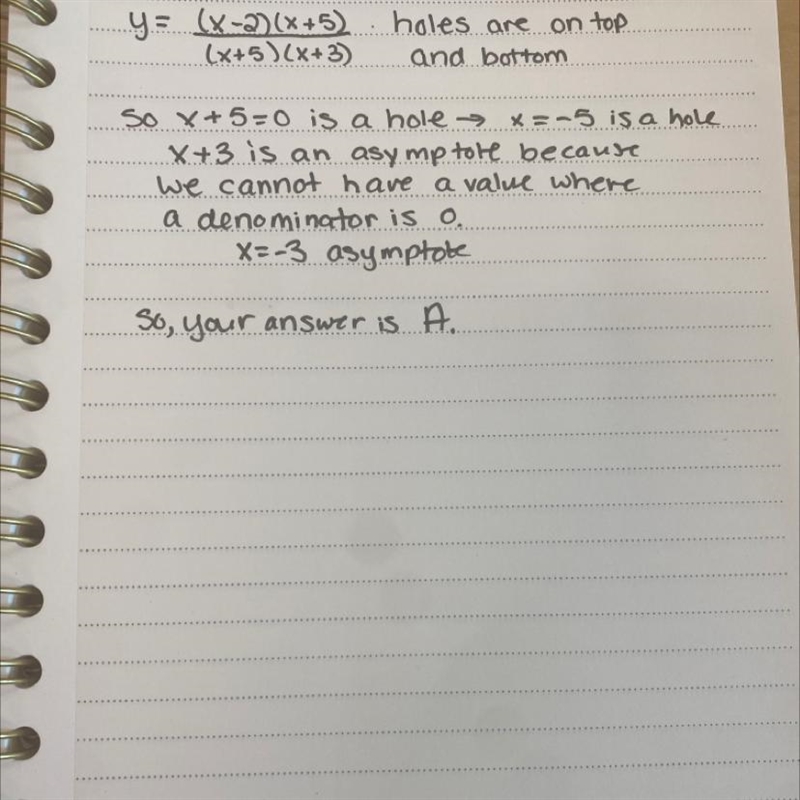 y = (x-2)(x+5) . holes are on top
(x+5)(x+3) and bottom
So x+5=0 is a hole → x=-5 is a hole
x+3 is an asymptote because
we cannot have a value where
a denominator is 0.
x=-3 asymptote
So, your answer is A.